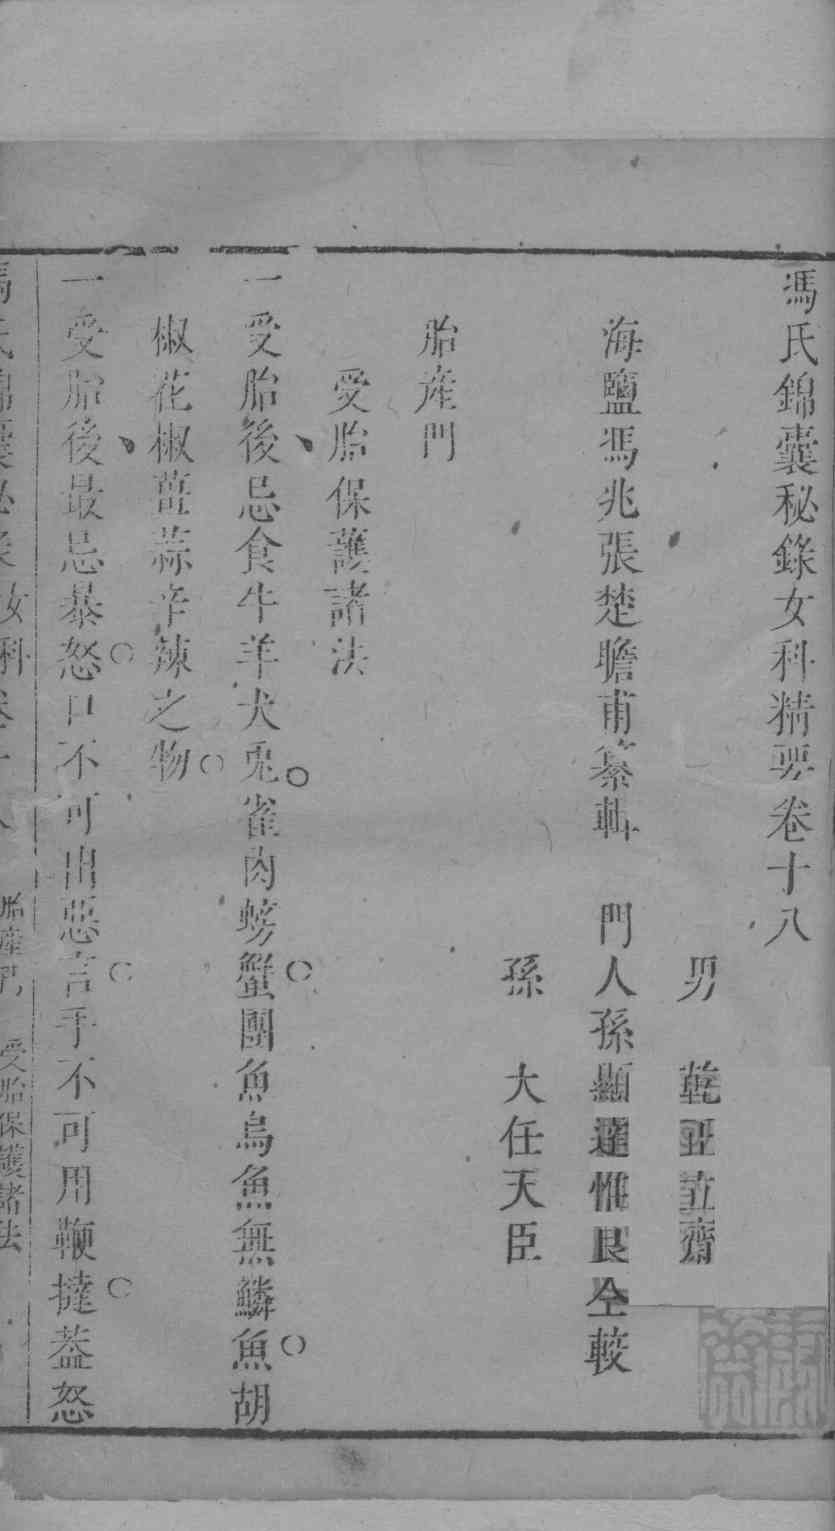 馮氏錦囊秘錄女科精要卷十八
男　乾亚立齋
海鹽馮兆張楚瞻甫纂輯　門人孫顯達惟良仝較
孫　大任天臣
胎產門
受胎保護諸法
一受胎後忌食牛羊犬兎雀肉螃蟹團魚烏魚無鱗魚胡
椒花椒薑蒜辛辣之物
一受胎後最忌暴怒口不可出惡言手不可用鞭撻葢怒
馮氏錦囊秘錄女科卷十八　胎產門　受胎保護諸法